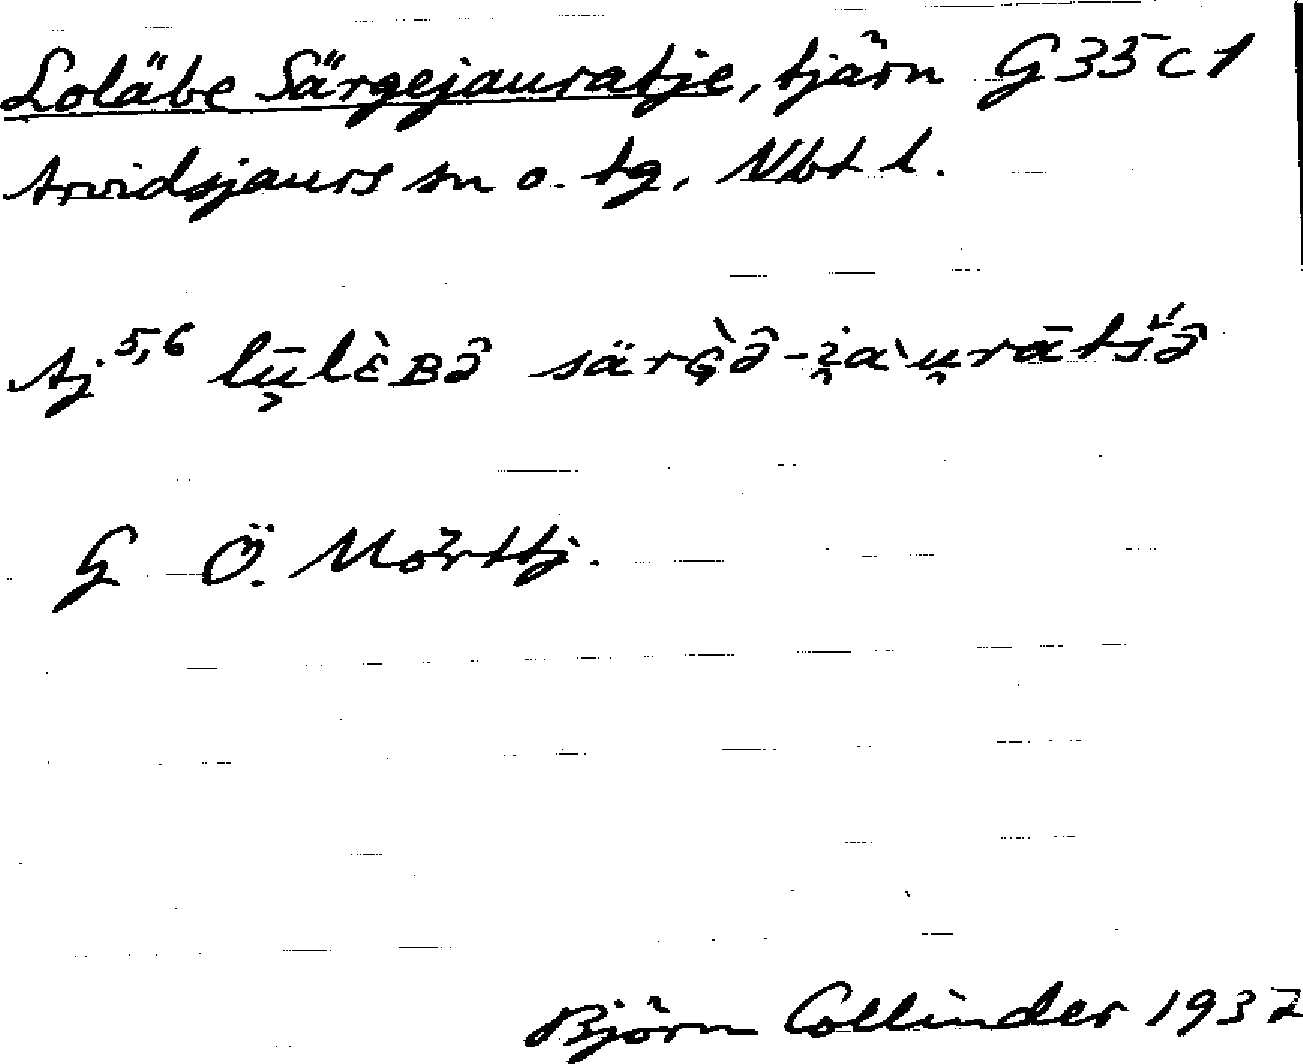 Loläbe Särgejauratje, tjärn G 35 C 1
Arvidsjaurs sn o. tg, Nbt l.
Aj 5,6 lū̬lὲʙə̑ särɢ̀ə̑-i̯a'u̯rātšə̑
G Ö. Mörttj.
Björn Collinder 1937